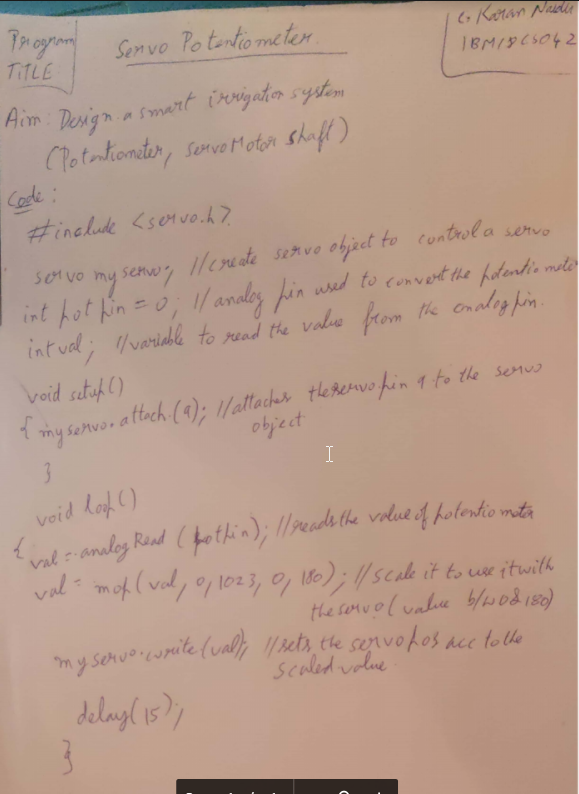 Program
TITLE
Servo Potentiometer.
G. Karan Naidu
1BM18CS042
Aim: Design a smart irrigation system
(Potentiometer, servo Motor shaft)
Code:
#include <servo.h>
servo myservo; //create servo object to control a servo
int potpin = 0; //analog pin used to convert the potentiomete
int val; //variable to read the value from the analog pin.
void setup()
{ myservo.attach(9); //attaches the servo pin 9 to the servo
object
}
void loop()
{ val = analogRead (potpin); //reads the value of potentiometer
val = map(val, 0, 1023, 0, 180); //scale it to use it with
the servo (value b/w 0 & 180)
myservo.write(val); //sets the servo pos acc to the
scaled value
delay(15);
}